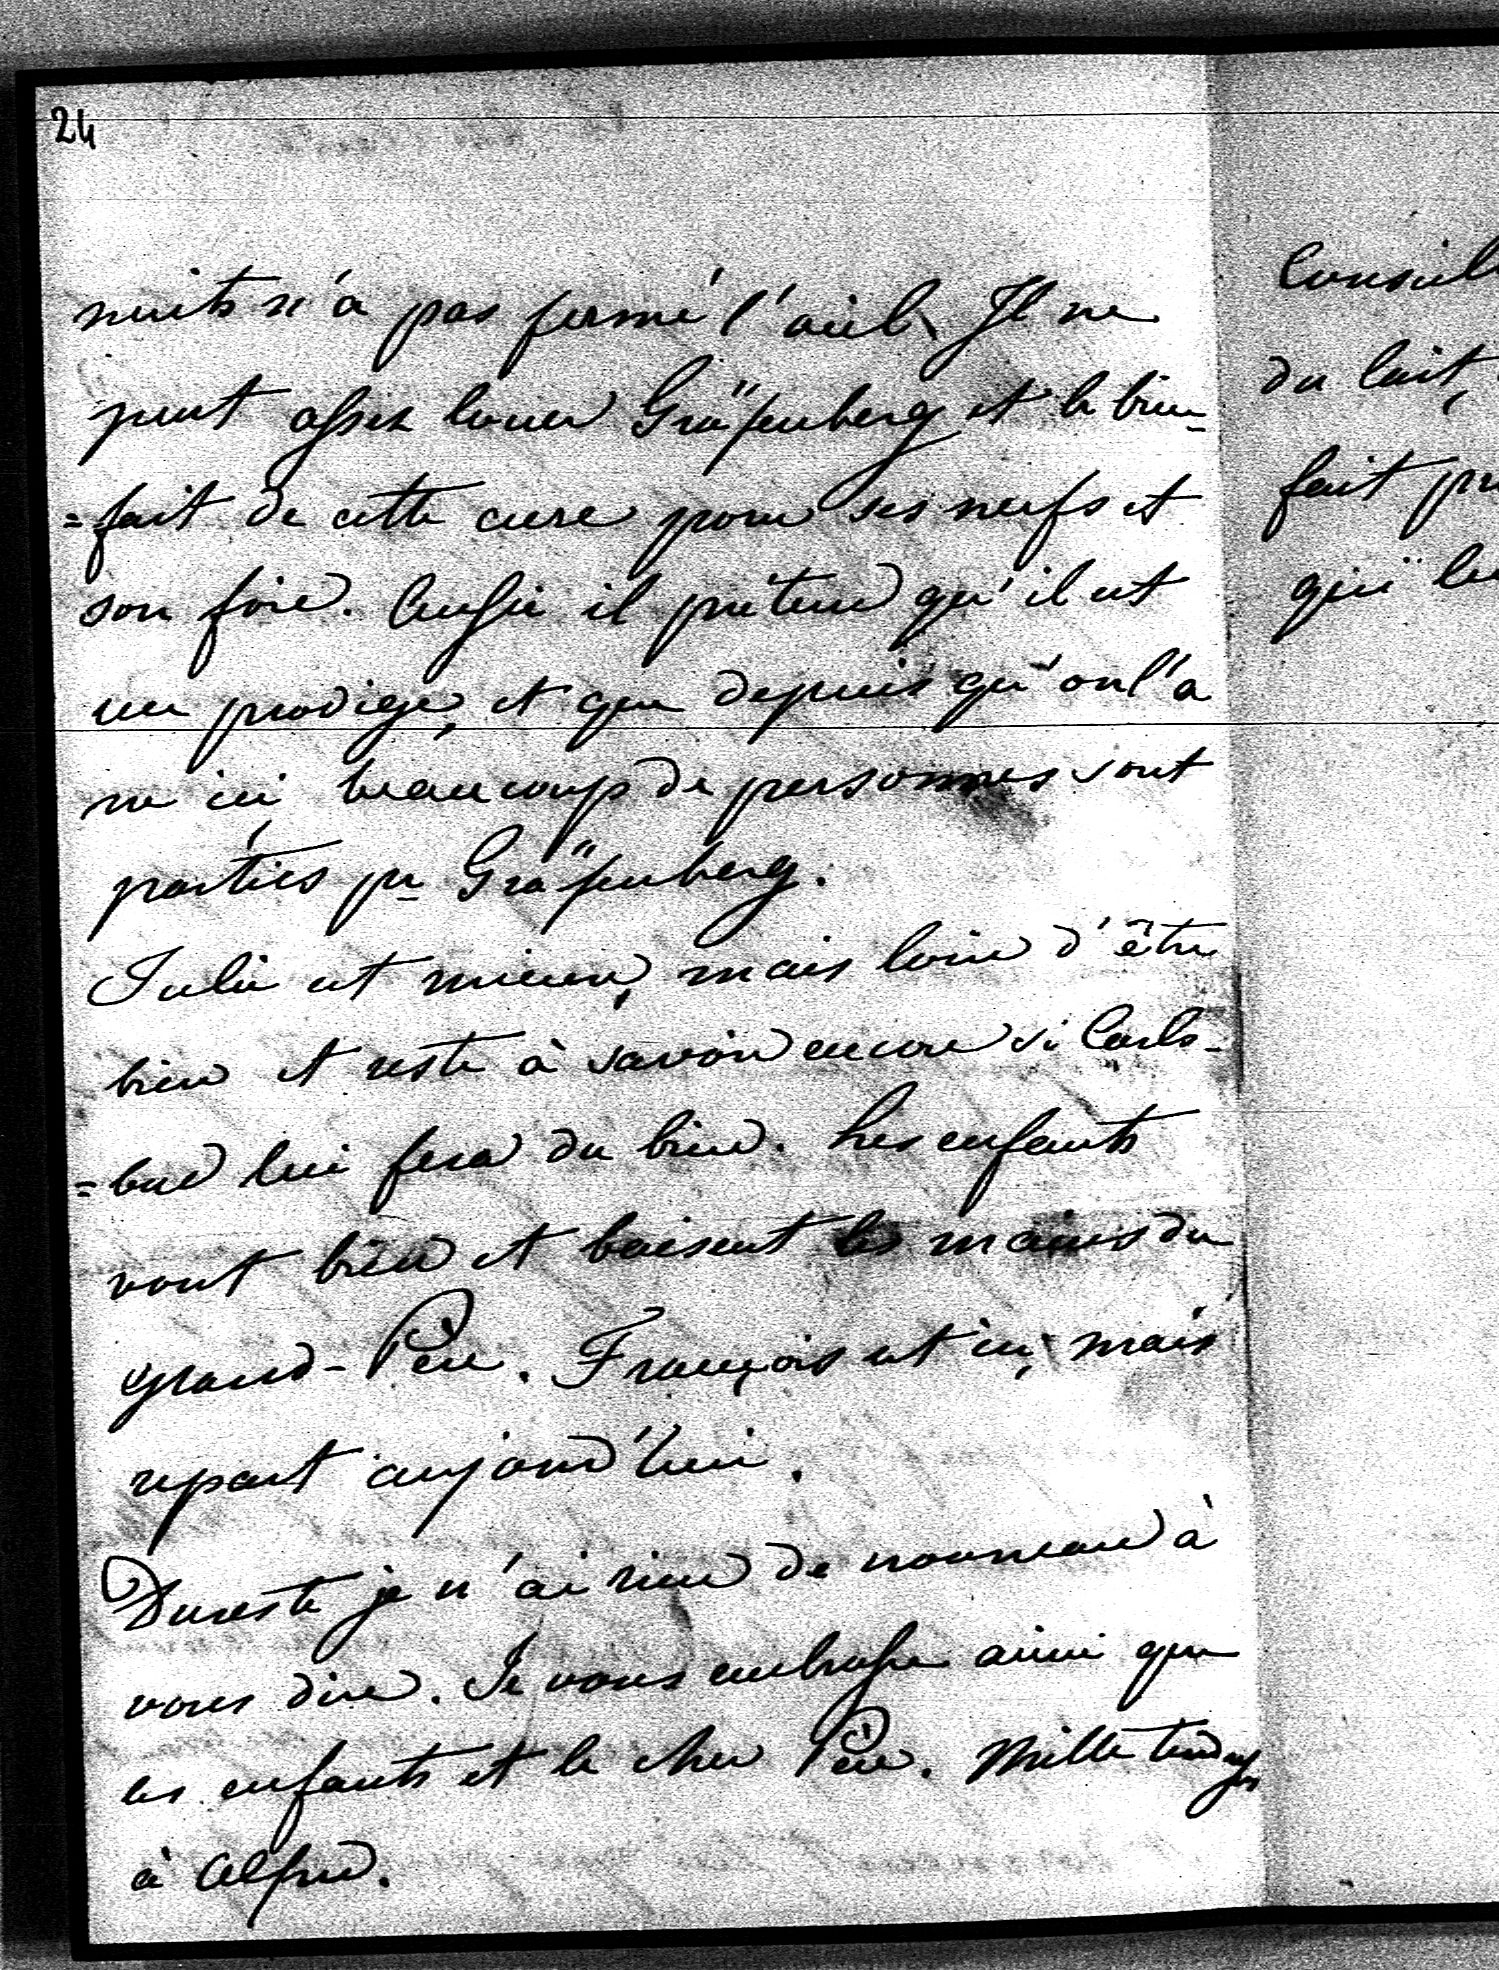 24
nuits n'a pas fermé l'œil. Il ne
peut assez louer Gräfenberg et le bien-
=fait de cette cure pour ses nerfs et
son foie. Aussi il prétend qu'il est
un prodige, et que depuis qu'on l'a
vu ici beaucoup de personnes sont
parties pr Gräfenberg.
Julie est mieux, mais loin d'être
bien et reste à savoir encore si Carls-
=bad lui fera du bien. Les enfants
vont bien et baisent les mains du
grand-Père. François est ici, mais
repart aujourd'hui.
Du reste je n'ai rien de nouveau à
vous dire. Je vous embrasse ainsi que
les enfants et le cher Père. Mille tendresses
à Alfred.
Conseil
du lait,
fait
qui